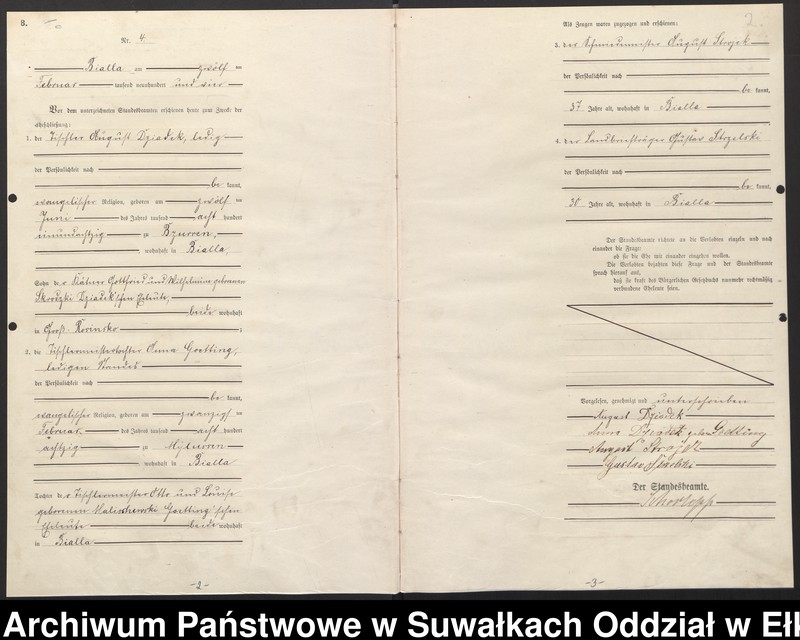 B.
Nr. 4
Bialla am zwölf ten
Februar tausend neunhundert und vier
Vor dem unterzeichneten Standesbeamten erschienen heute zum Zweck der
Eheschließung:
1. der Tischler August Dziadek, ledig
der Persönlichkeit nach
be kannt,
evangelischer Religion, geboren am zwölf ten
Juni des Jahres tausend acht hundert
einundachtzig zu Bzurren,
wohnhaft in Bialla,
Sohn der Kätner Gottfried und Wilhelmine geborenen
Dziadek'schen Eheleute,
beide wohnhaft
in Groß Rosinsko
2. die Tischlermeistertochter Anna Goetting,
ledigen Standes
der Persönlichkeit nach
be kannt,
evangelischer Religion, geboren am zwanzigsten
Februar des Jahres tausend acht hundert
achtzig zu
wohnhaft in Bialla
Tochter der Tischlermeister Otto und Louise
geborenen Goetting'schen
Eheleute beide wohnhaft
in Bialla
-2-
2.
Als Zeugen waren zugezogen und erschienen:
3. der Schmiedemeister August
der Persönlichkeit nach
be kannt,
37 Jahre alt, wohnhaft in Bialla
4. der Landbriefträger Gustav Strzelski
der Persönlichkeit nach
be kannt,
38 Jahre alt, wohnhaft in Bialla
Der Standesbeamte richtete an die Verlobten einzeln und nach
einander die Frage:
ob sie die Ehe mit einander eingehen wollen.
Die Verlobten bejahten diese Frage und der Standesbeamte
sprach hierauf aus,
daß sie kraft des Bürgerlichen Gesetzbuchs nunmehr rechtmäßig
verbundene Eheleute seien.
Vorgelesen, genehmigt und unterschrieben
August Dziadek
Anna Dziadek geb. Goetting
August
Gustav
Der Standesbeamte.
-3-
Archiwum Państwowe w Suwałkach Oddział w Eł